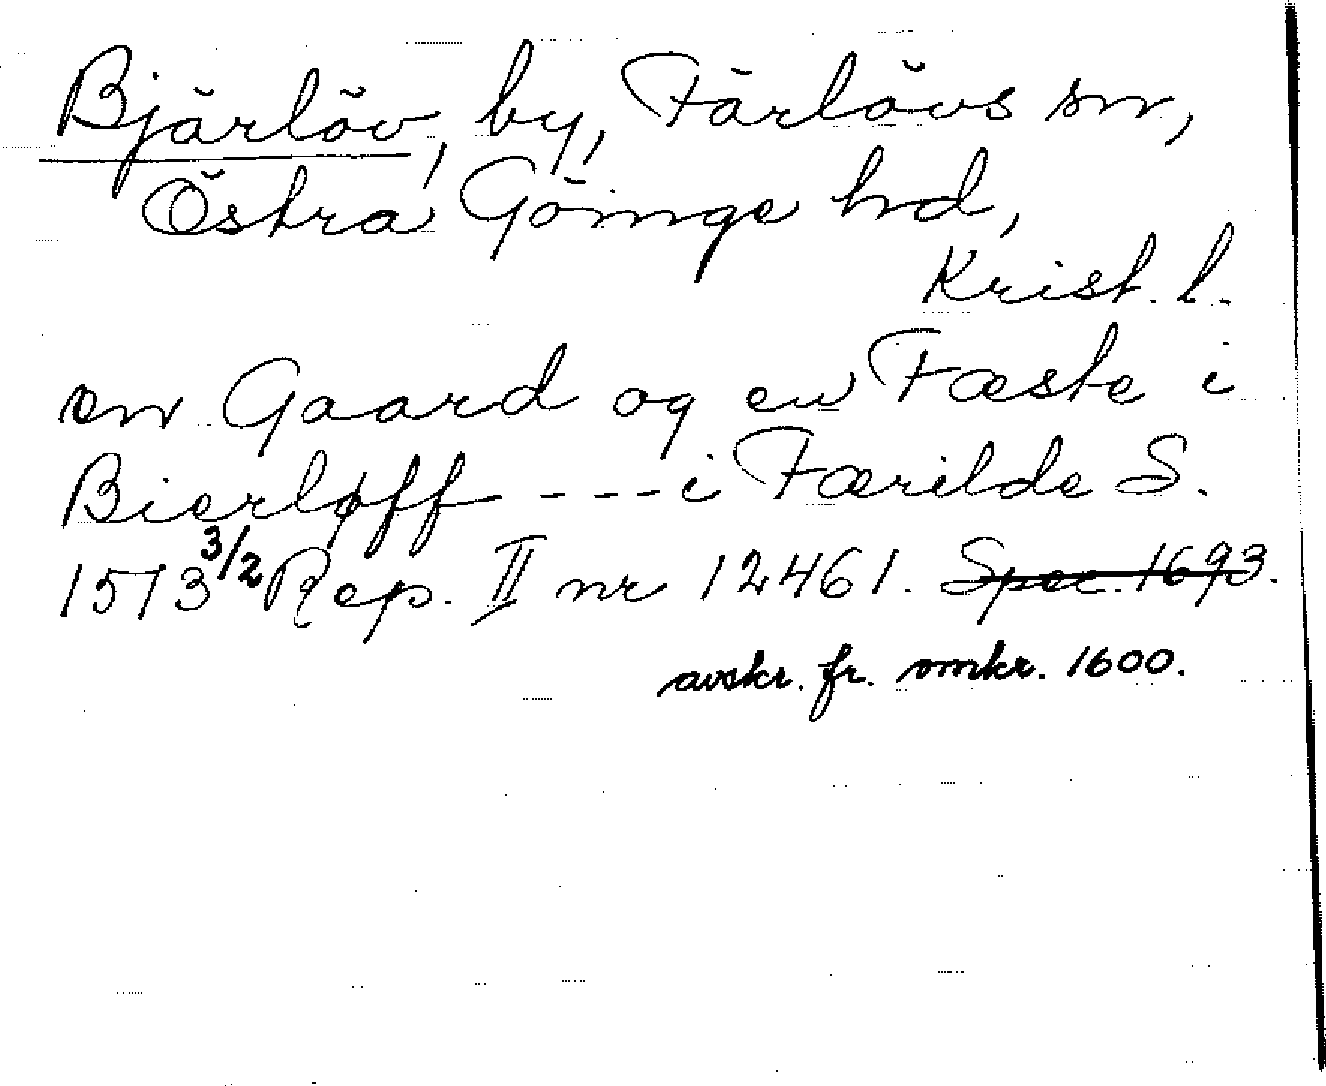 Bjärlöv, by, Färlövs sn,
Östra Göinge hd,
Krist. l.
en Gaard og en Fæste i
Bierløff - - - - i Færilde S.
1573 3/2 Rep. II nr 12461. Spec. 1693.
avskr. fr. omkr. 1600.